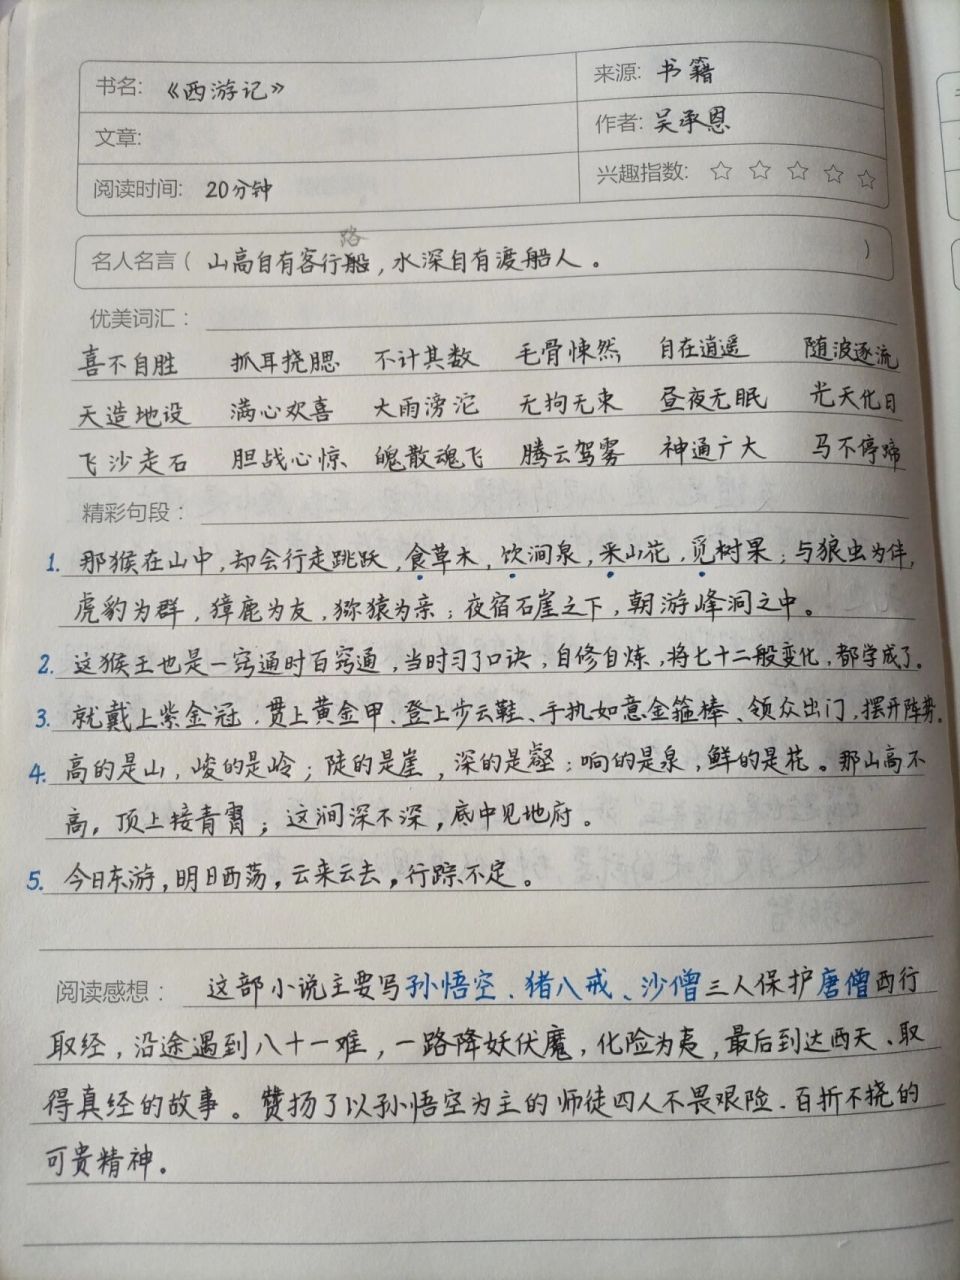 书名: 《西游记》 来源: 书籍
文章: 作者: 吴承恩
阅读时间: 20分钟 兴趣指数: ☆ ☆ ☆ ☆ ☆
路
名人名言( 山高自有客行船,水深自有渡船人。 )
优美词汇:
喜不自胜 抓耳挠腮 不计其数 毛骨悚然 自在逍遥 随波逐流
天造地设 满心欢喜 大雨滂沱 无拘无束 昼夜无眠 光天化日
飞沙走石 胆战心惊 魄散魂飞 腾云驾雾 神通广大 马不停蹄
精彩句段:
1. 那猴在山中,却会行走跳跃,食草木,饮涧泉,采山花,觅树果;与狼虫为伴,
虎豹为群,獐鹿为友,猕猿为亲;夜宿石崖之下,朝游峰洞之中。
2. 这猴王也是一窍通时百窍通,当时习了口诀,自修自炼,将七十二般变化,都学成了。
3. 就戴上紫金冠,贯上黄金甲、登上步云鞋、手执如意金箍棒、领众出门,摆开阵势。
4. 高的是山,峻的是岭;陡的是崖,深的是壑;响的是泉,鲜的是花。那山高不
高,顶上接青霄;这涧深不深,底中见地府。
5. 今日东游,明日西荡,云来云去,行踪不定。
阅读感想: 这部小说主要写孙悟空、猪八戒、沙僧三人保护唐僧西行
取经,沿途遇到八十一难,一路降妖伏魔,化险为夷,最后到达西天、取
得真经的故事。赞扬了以孙悟空为主的师徒四人不畏艰险、百折不挠的
可贵精神。